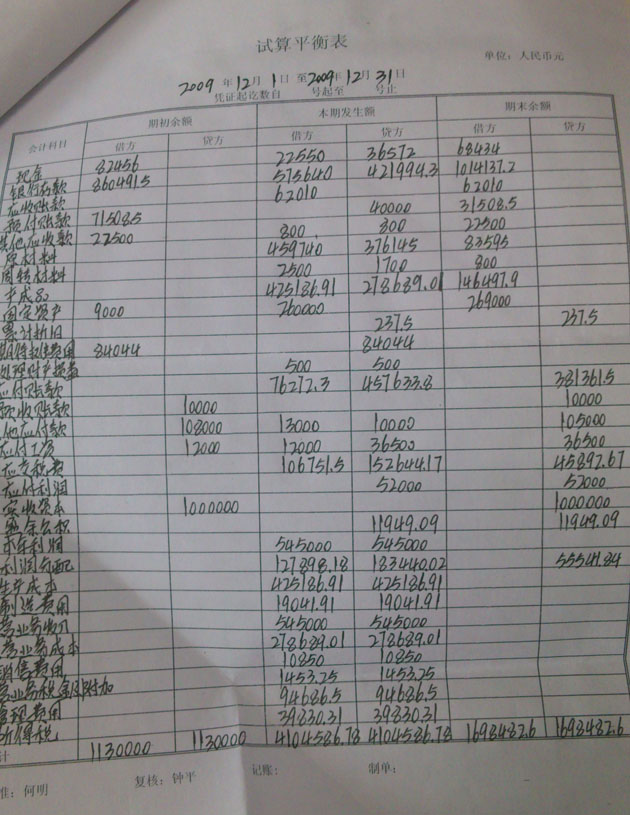 试算平衡表
单位：人民币元
2009 年 12 月 1 日 至 2009 年 12 月 31 日
凭证起讫数自 号起至 号止
会计科目 期初余额 本期发生额 期末余额
借方 贷方 借方 贷方 借方 贷方
现金 82456 22550 36572 68434
银行存款 860491.5 575640 421994.3 1014137.2
应收账款 62010 62010
预付账款 71508.5 40000 31508.5
其他应收款 22500 800 800 22500
原材料 459740 376145 83595
周转材料 2500 1700 800
产成品 425186.91 278689.01 146497.9
固定资产 9000 260000 269000
累计折旧 237.5 237.5
期待摊费用 84044 84044
处理财产损益 500 500
应付账款 76272.3 457633.8 381361.5
预收账款 10000 10000
他应付款 108000 13000 10000 105000
应付工资 12000 12000 36500 36500
应交税费 106751.5 152644.17 45892.67
应付利润 52000 52000
实收资本 1000000 1000000
盈余公积 11949.09 11949.09
本年利润 545000 545000
利润分配 127898.18 183440.02 55541.84
生产成本 425186.91 425186.91
制造费用 19041.91 19041.91
营业务收入 545000 545000
营业务成本 278689.01 278689.01
销售费用 10850 10850
营业务税金及附加 1453.25 1453.25
管理费用 94686.5 94686.5
所得税 39830.31 39830.31
计 1130000 1130000 4104586.78 4104586.78 1698482.6 1698482.6
准：何明 复核：钟平 记账： 制单：